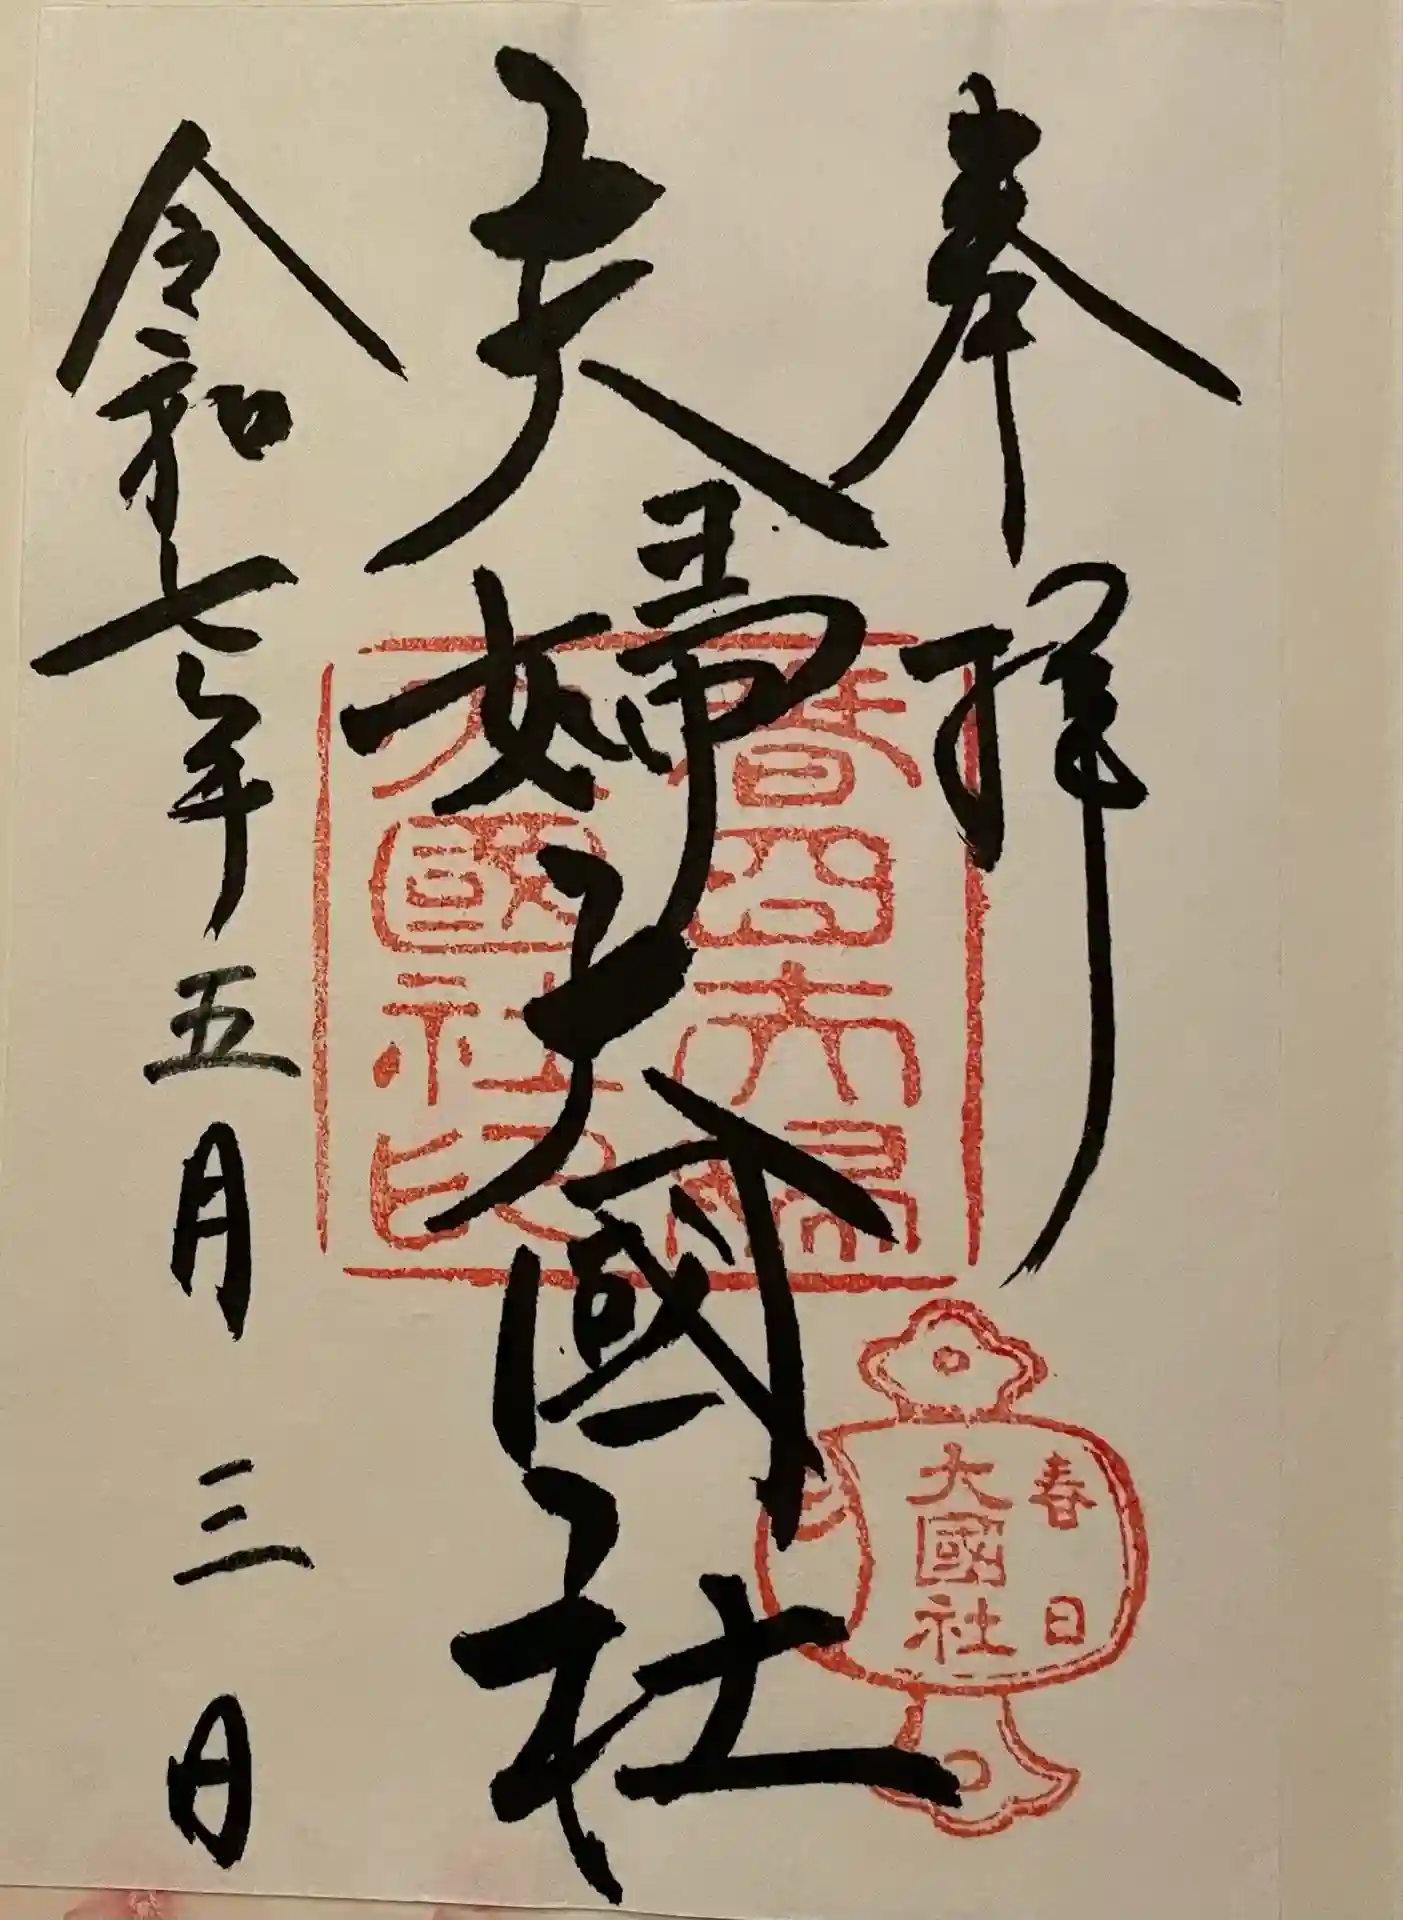 奉拝
夫婦大國社
令和七年五月三日
春日大社
大國社印
春日
大國社